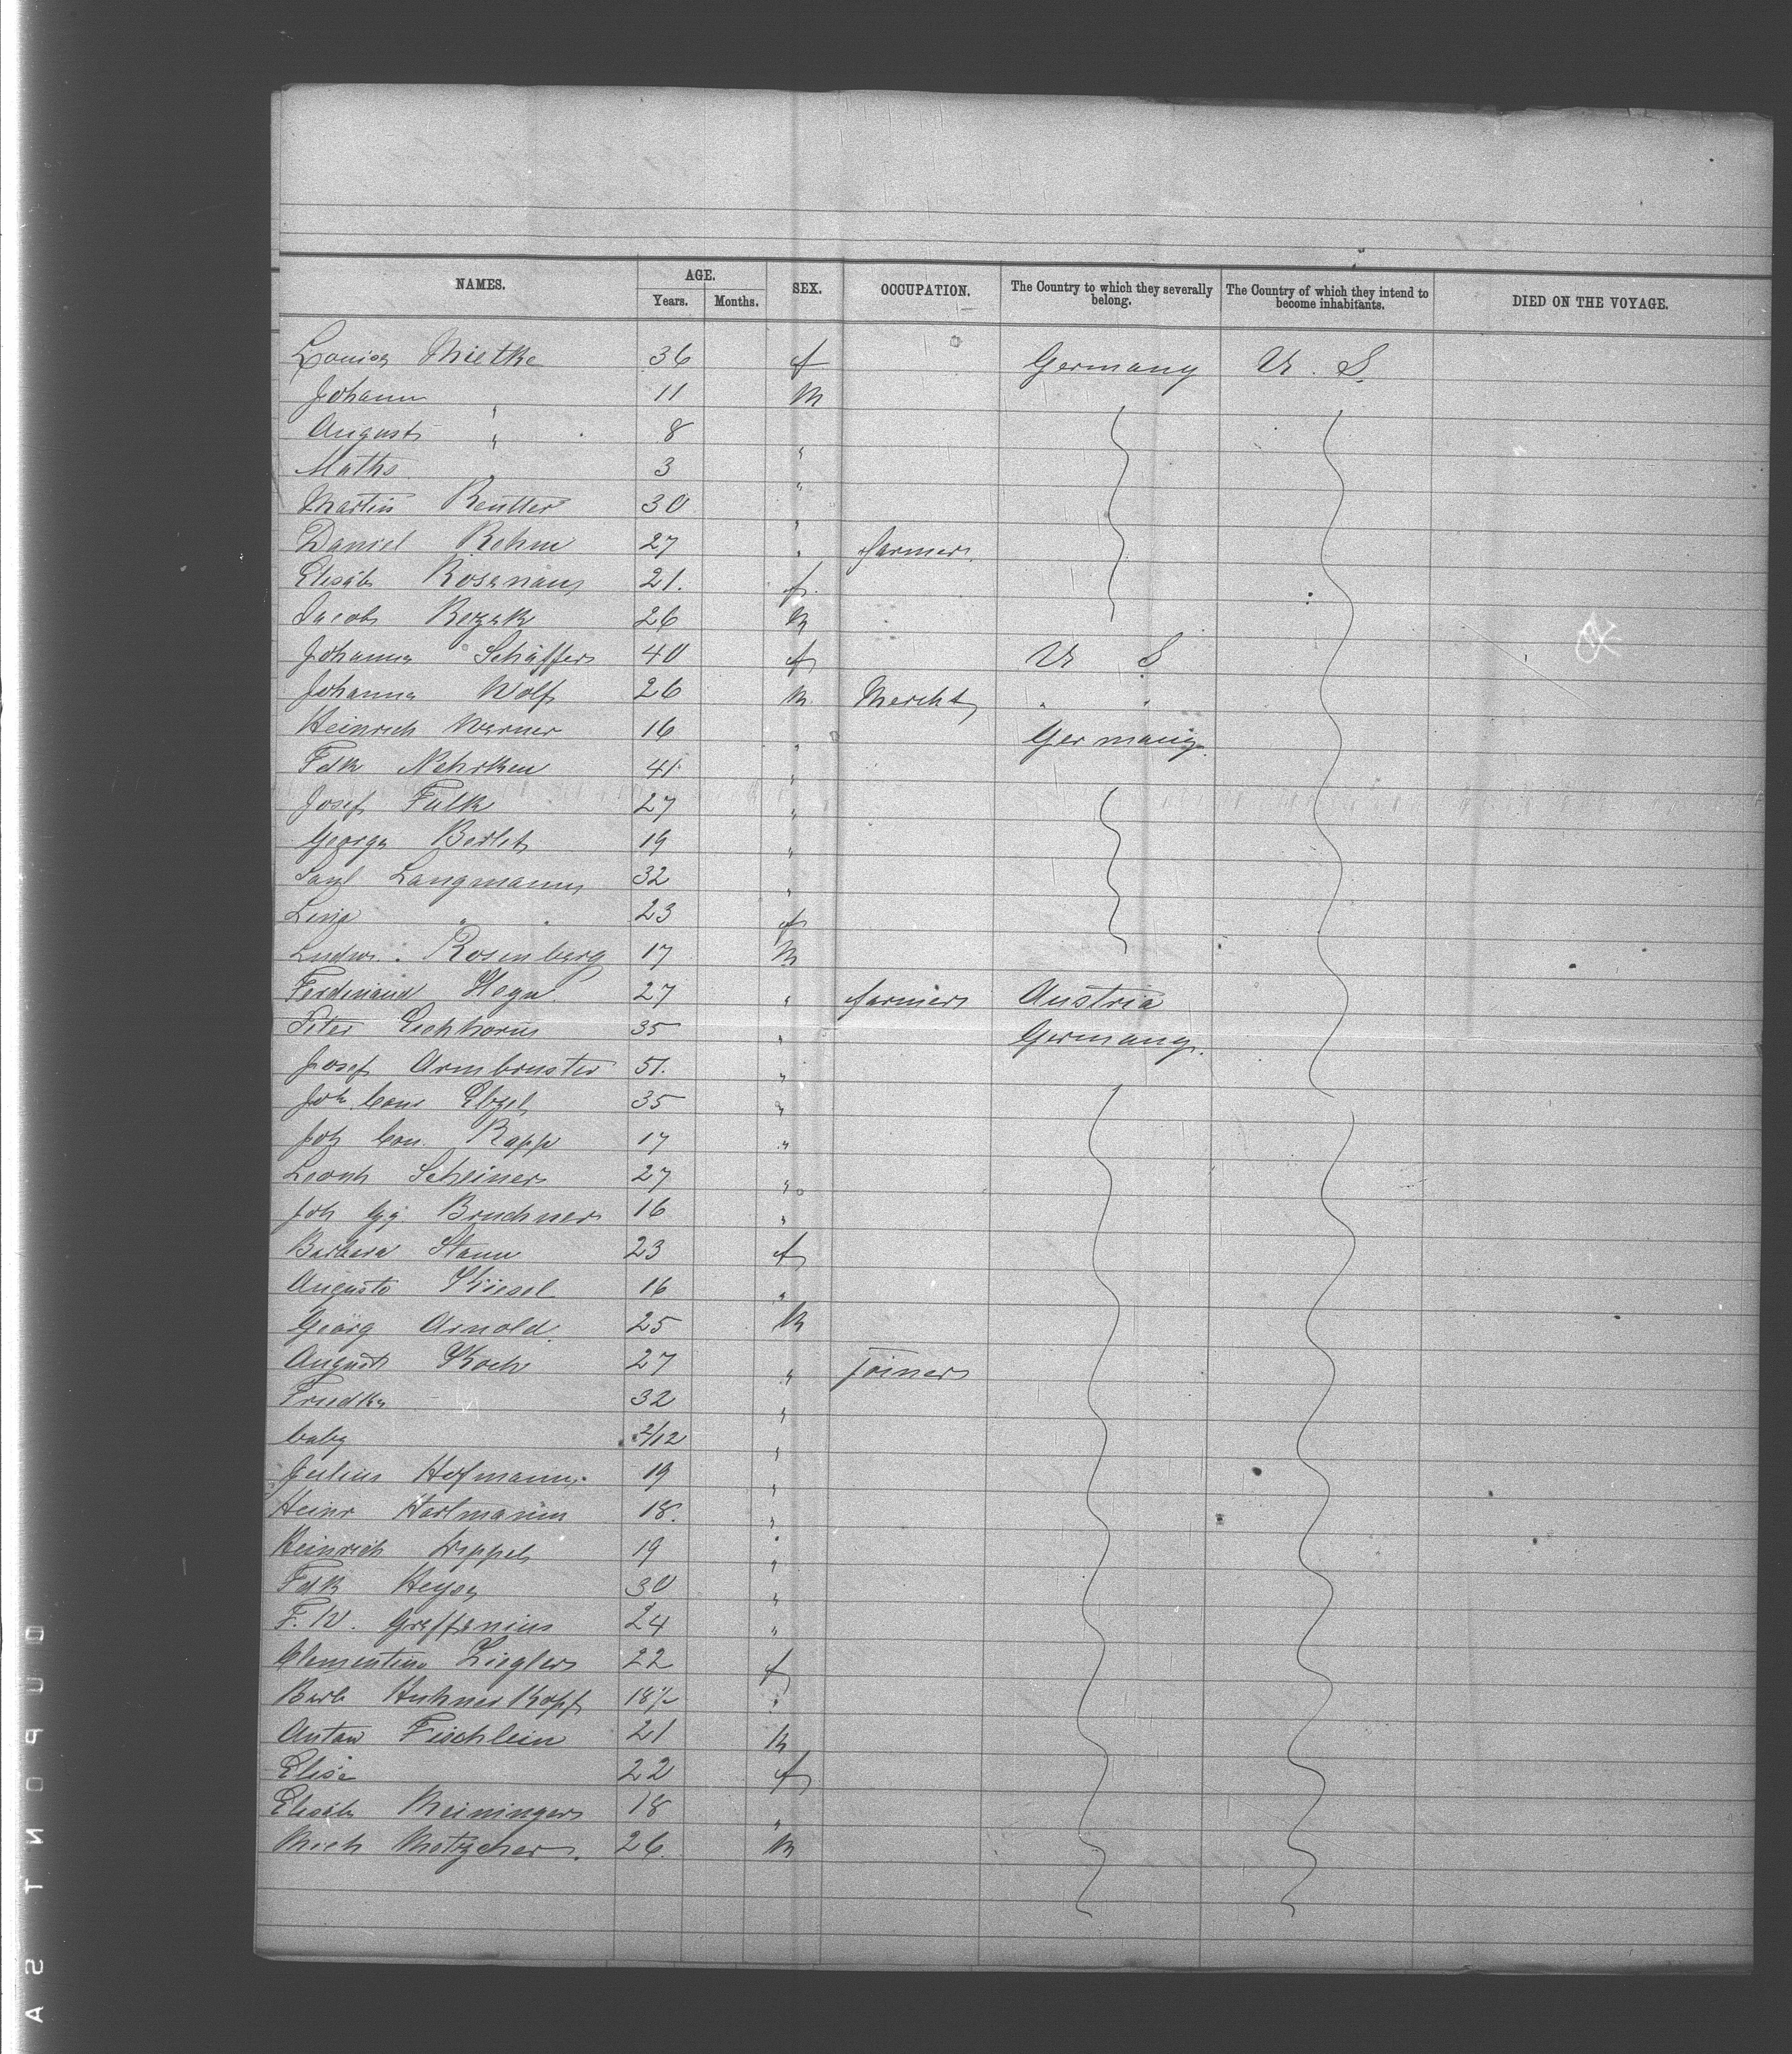 NAMES. AGE. SEX. OCCUPATION. The Country to which they severally belong. The Country of which they intend to become inhabitants. DIED ON THE VOYAGE.
Years. Months.
Louisa Mietke 36 f Germany U. S.
Johann " 11 M
August " 8 "
Maths 3 "
Martin Reutter 30 "
Daniel Rehm 27 " farmer
Elisab Rosenau 21. f
Jacob 26 M
Johanna Schäffer 40 f U S
Johanna Wolf 26 M Mercht " "
Heinrich Werner 16 " Germany
Fdk Nehrken 41 "
Josef Falk 27 "
George Berlet 19 "
Saml Langmann 32 "
Lina " " 23 f
Ludw. Rosenberg 17 M
Ferdinand 27 " farmer Austria
Peter Eichhorn 35 " Germany
Josef Armbruster 51. "
Joh Conr Etzel 35 "
Joh Con. Rapp 17 "
Leonh Scheiner 27 "
Joh Gg Bruchner 16 "
Barbara Stamm 23 f
Augusta Kiesel 16 "
Georg Arnold 25 M
August Koch 27 " Joiner
Friedke 32 "
baby 2/12 "
Julius Hofmann 19 "
Heinr Hartmann 18. "
Heinrich Lippel 19 "
Fdk Heyse 30 "
F. W. Greffenius 24 "
Clementine Ziegler 22 f
Barb Huhnerkopf 18 1/2 "
Anton Fischlein 21 M
Elise 22 f
Elisab Meininger 18 "
Mich Motzcher 26. M
ASTN0PUD